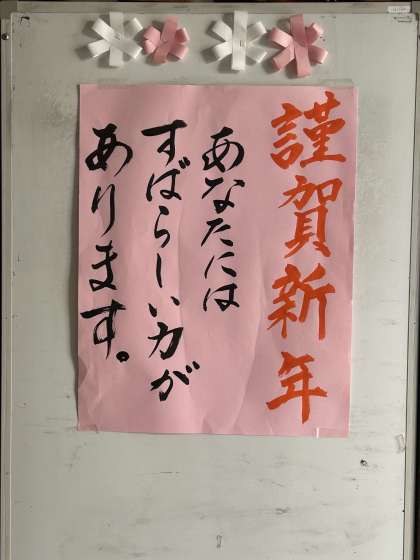 謹賀新年
あなたには
すばらしい力が
あります。